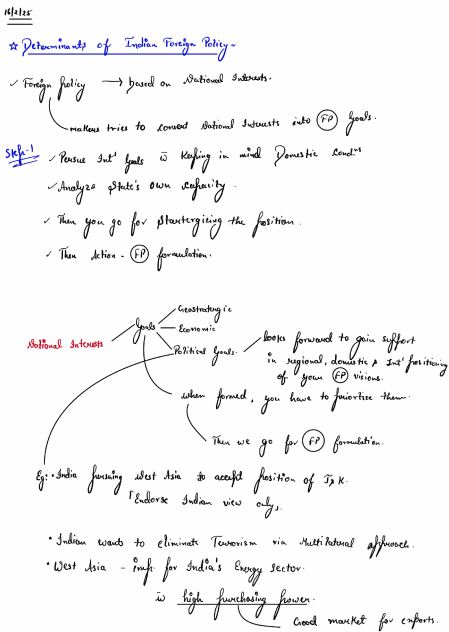 16/2/25
☆ Determinants of Indian Foreign Policy~
✓ Foreign policy → based on National Interests.
makers tries to convert National Interests into FP Goals.
Step-1
✓ Persue Int' Goals w̄ Keeping in mind Domestic Condⁿˢ
✓ Analyze State's own capacity.
✓ Then you go for startergizing the position.
✓ Then Action - FP formulation.
National Interests
Goals
Geostrategic
Economic
Political Goals.
looks forward to gain support
in regional, domestic & Int' positioning
of your FP visions.
when formed, you have to priortize them.
Then we go for FP formulation.
Eg: • India pursuing West Asia to accept position of J&K.
"Endorse Indian view only,
• Indian wants to eliminate Terrorism via Multilateral approach.
• West Asia - imp. for India's Energy Sector.
w̄ high purchasing power.
Good market for exports.